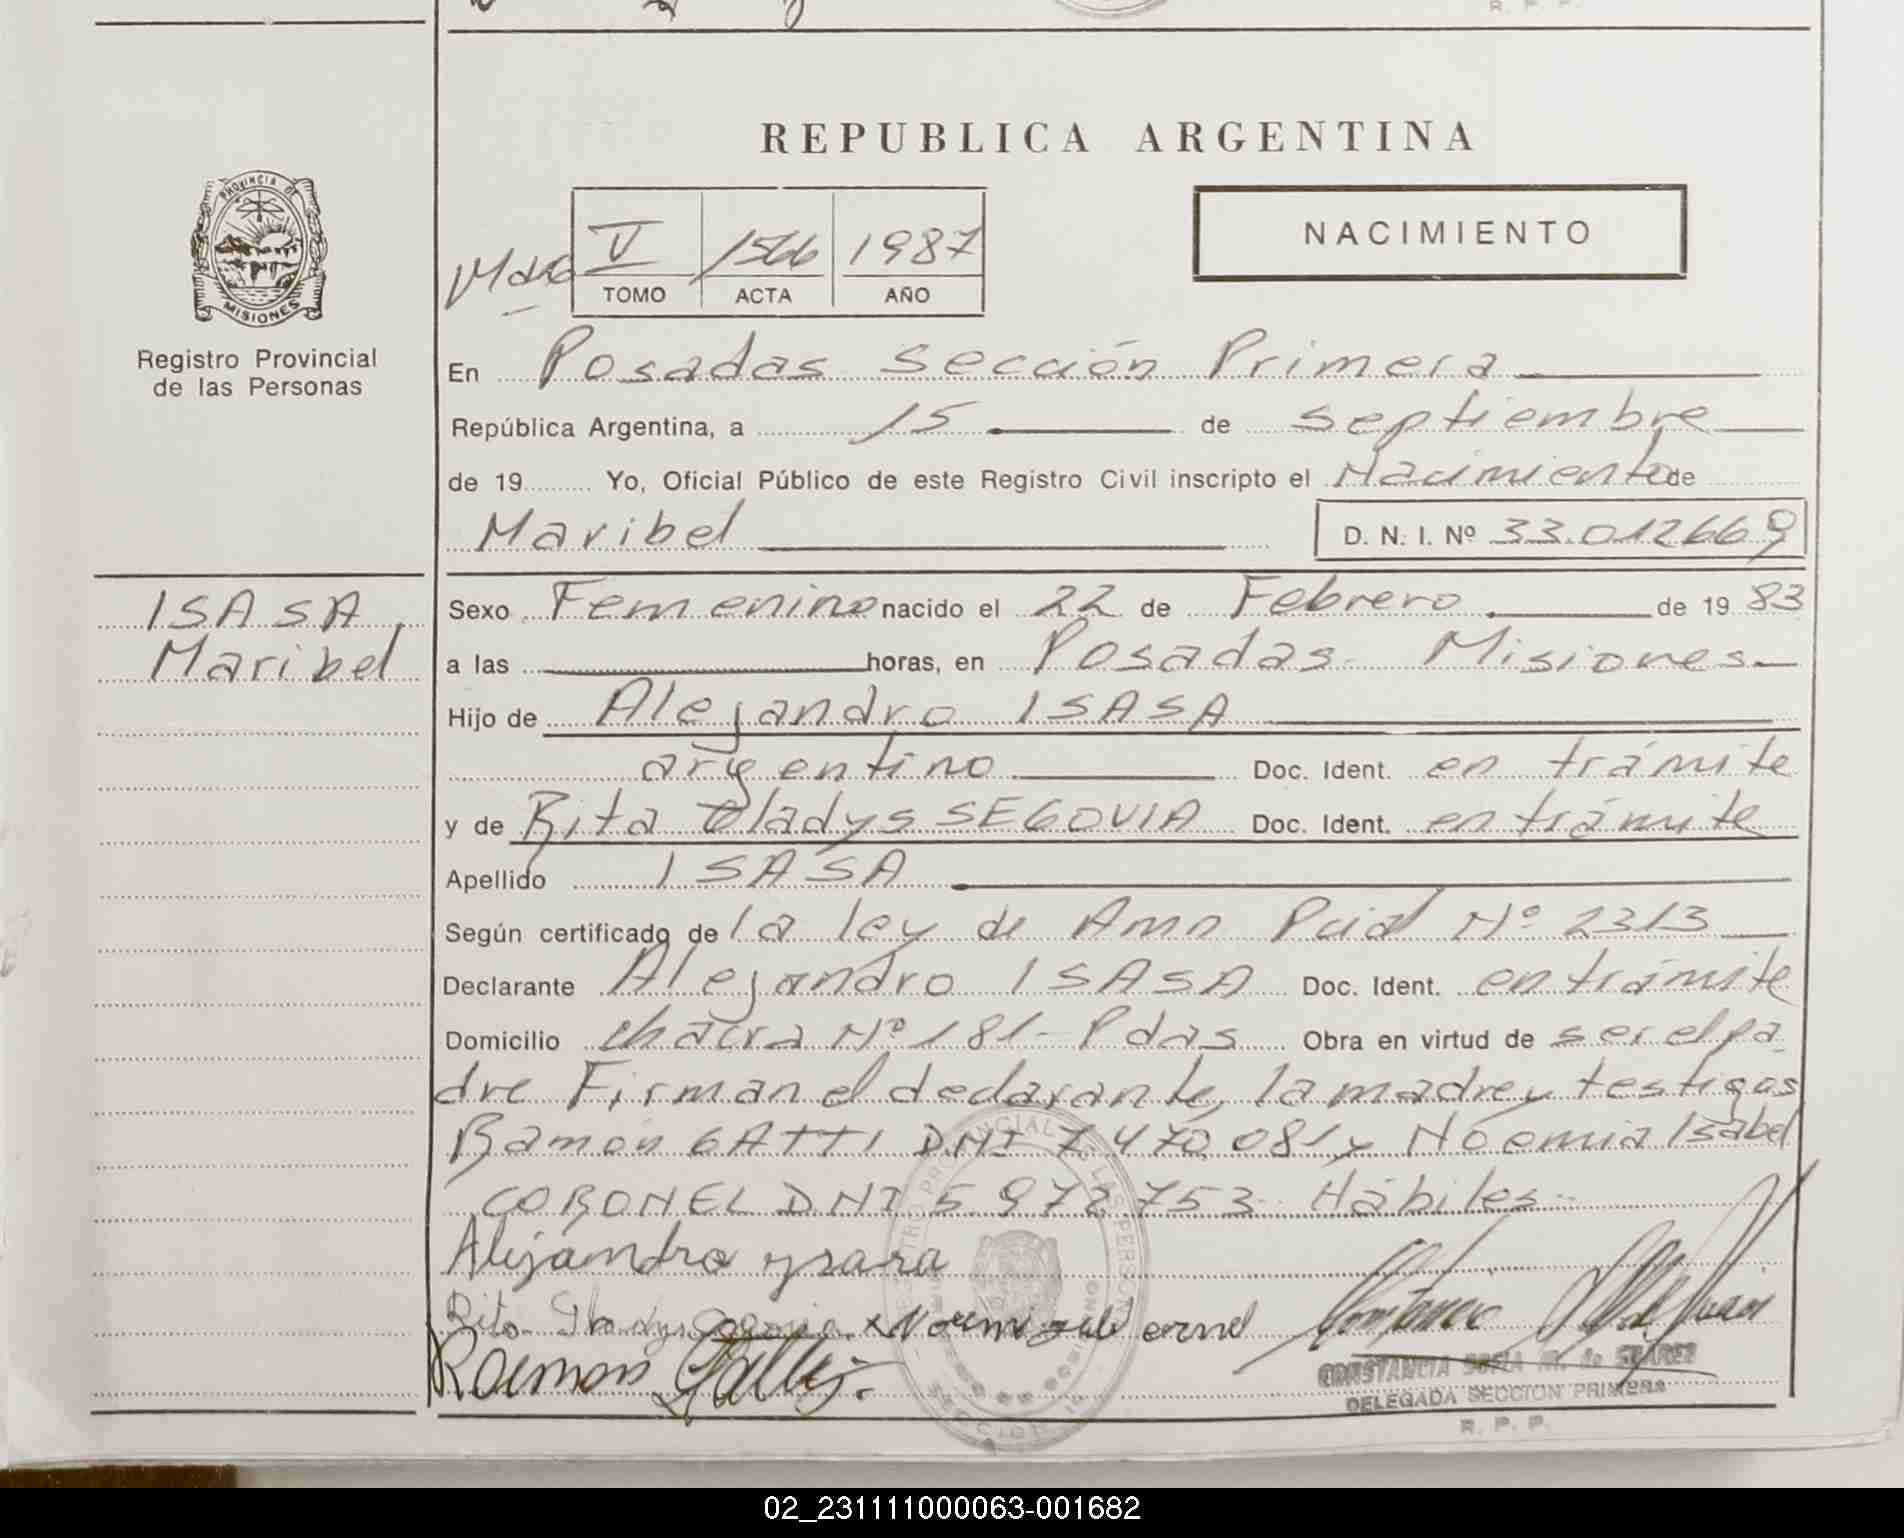 R. P. P.
REPUBLICA ARGENTINA
PROVINCIA DE
MISIONES
Registro Provincial
de las Personas
V 1566 1987
TOMO ACTA AÑO
NACIMIENTO
En Posadas Sección Primera
República Argentina, a 15 de septiembre
de 19 Yo, Oficial Público de este Registro Civil inscripto el Nacimiento de
Maribel D. N. I. Nº 33.012669
ISASA
Maribel
Sexo Femenino nacido el 22 de Febrero de 19 83
a las horas, en Posadas Misiones
Hijo de Alejandro ISASA
argentino Doc. Ident. en trámite
y de Rita Gladys SEGOVIA Doc. Ident. en trámite
Apellido ISASA
Según certificado de la ley de Amn Pcial Nº 2313
Declarante Alejandro ISASA Doc. Ident. en trámite
Domicilio chacra Nº 181- Pdas Obra en virtud de ser el pa
dre Firman el declarante, la madre y testigos
Ramón GATTI DNI 7.470.081 y Noemia Isabel
CORONEL DNI 5.972.753 Hábiles-
Alejandro ysasa
Rita Gladys Segovia
Ramon Gatti
CONSTANCIA SOFIA M. de SUAREZ
DELEGADA SECCION PRIMERA
R. P. P.
02_231111000063-001682